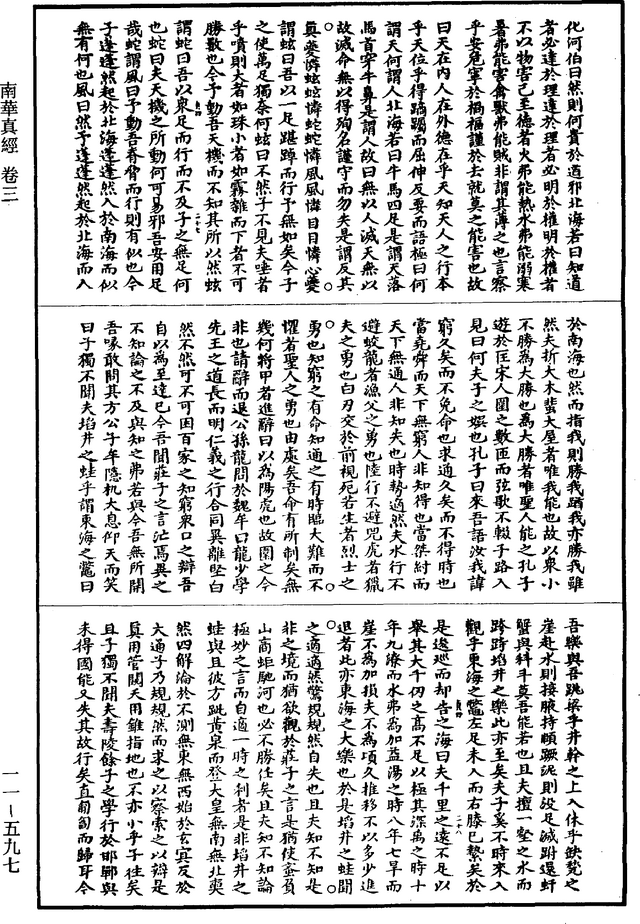 南華真經 卷三
一一-五九七
化何伯曰然則何貴於道邪北海若曰知道
者必達於理達於理者必明於權明於權者
不以物害己至德者火弗能熱水弗能溺寒
暑弗能害禽獸弗能賊非謂其薄之也言察
乎安危寧於禍福謹於去就莫之能害也故
曰天在內人在外德在乎天知天人之行本
乎天位乎得蹢躅而屈伸反要而語極曰何
謂天何謂人北海若曰牛馬四足是謂天落
馬首穿牛鼻是謂人故曰無以人滅天無以
故滅命無以得殉名謹守而勿失是謂反其
真夔憐蚿蚿憐蛇蛇憐風風憐目目憐心夔
謂蚿曰吾以一足趻踔而行予無如矣今子
之使萬足獨奈何蚿曰不然子不見夫唾者
乎噴則大者如珠小者如霧雜而下者不可
勝數也今予動吾天機而不知其所以然蚿
謂蛇曰吾以衆足而行而不及子之無足何
也蛇曰夫天機之所動何可易邪吾安用足
哉蛇謂風曰予動吾脊脅而行則有似也今
子蓬蓬然起於北海蓬蓬然入於南海而似
無有何也風曰然予蓬蓬然起於北海而入
於南海也然而指我則勝我䠓我亦勝我雖
然夫折大木蜚大屋者唯我能也故以衆小
不勝為大勝也為大勝者唯聖人能之孔子
遊於匡宋人圍之數匝而弦歌不輟子路入
見曰何夫子之娛也孔子曰來吾語汝我諱
窮久矣而不免命也求通久矣而不得時也
當堯舜而天下無窮人非知得也當桀紂而
天下無通人非知失也時勢適然夫水行不
避蛟龍者漁父之勇也陸行不避兕虎者獵
夫之勇也白刃交於前視死若生者烈士之
勇也知窮之有命知通之有時臨大難而不
懼者聖人之勇也由處矣吾命有所制矣無
幾何將甲者進辭曰以為陽虎也故圍之今
非也請辭而退公孫龍問於魏牟曰龍少學
先王之道長而明仁義之行合同異離堅白
然不然可不可困百家之知窮衆口之辯吾
自以為至達已今吾聞莊子之言汒焉異之
不知論之不及與知之弗若與今吾無所開
吾喙敢問其方公子牟隱机大息仰天而笑
曰子獨不聞夫埳井之蛙乎謂東海之鼈曰
吾樂與吾跳梁乎井幹之上入休乎缺甃之
崖赴水則接腋持頤蹶泥則沒足滅跗還虷
蟹與科斗莫吾能若也且夫擅一壑之水而
跨跱埳井之樂此亦至矣夫子奚不時來入
觀乎東海之鼈左足未入而右膝已縶矣於
是逡巡而却告之海曰夫千里之遠不足以
舉其大千仞之高不足以極其深禹之時十
年九潦而水弗為加益湯之時八年七旱而
崖不為加損夫不為頃久推移不以多少進
退者此亦東海之大樂也於是埳井之蛙聞
之適適然驚規規然自失也且夫知不知是
非之境而猶欲觀於莊子之言是猶使蚉負
山商蚷馳河也必不勝任矣且夫知不知論
極妙之言而自適一時之利者是非埳井之
蛙與且彼方跐黃泉而登大皇無南無北奭
然四解淪於不測無東無西始於玄冥反於
大通子乃規規然而求之以察索之以辯是
直用管闚天用錐指地也不亦小乎子往矣
且子獨不聞夫壽陵餘子之學行於邯鄲與
未得國能又失其故行矣直匍匐而歸耳今